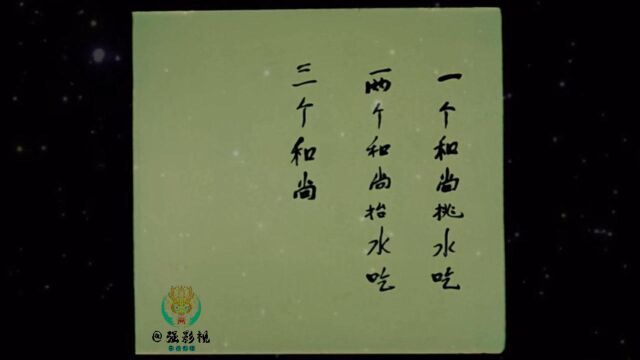 一个和尚挑水吃
两个和尚抬水吃
三个和尚
@强影视